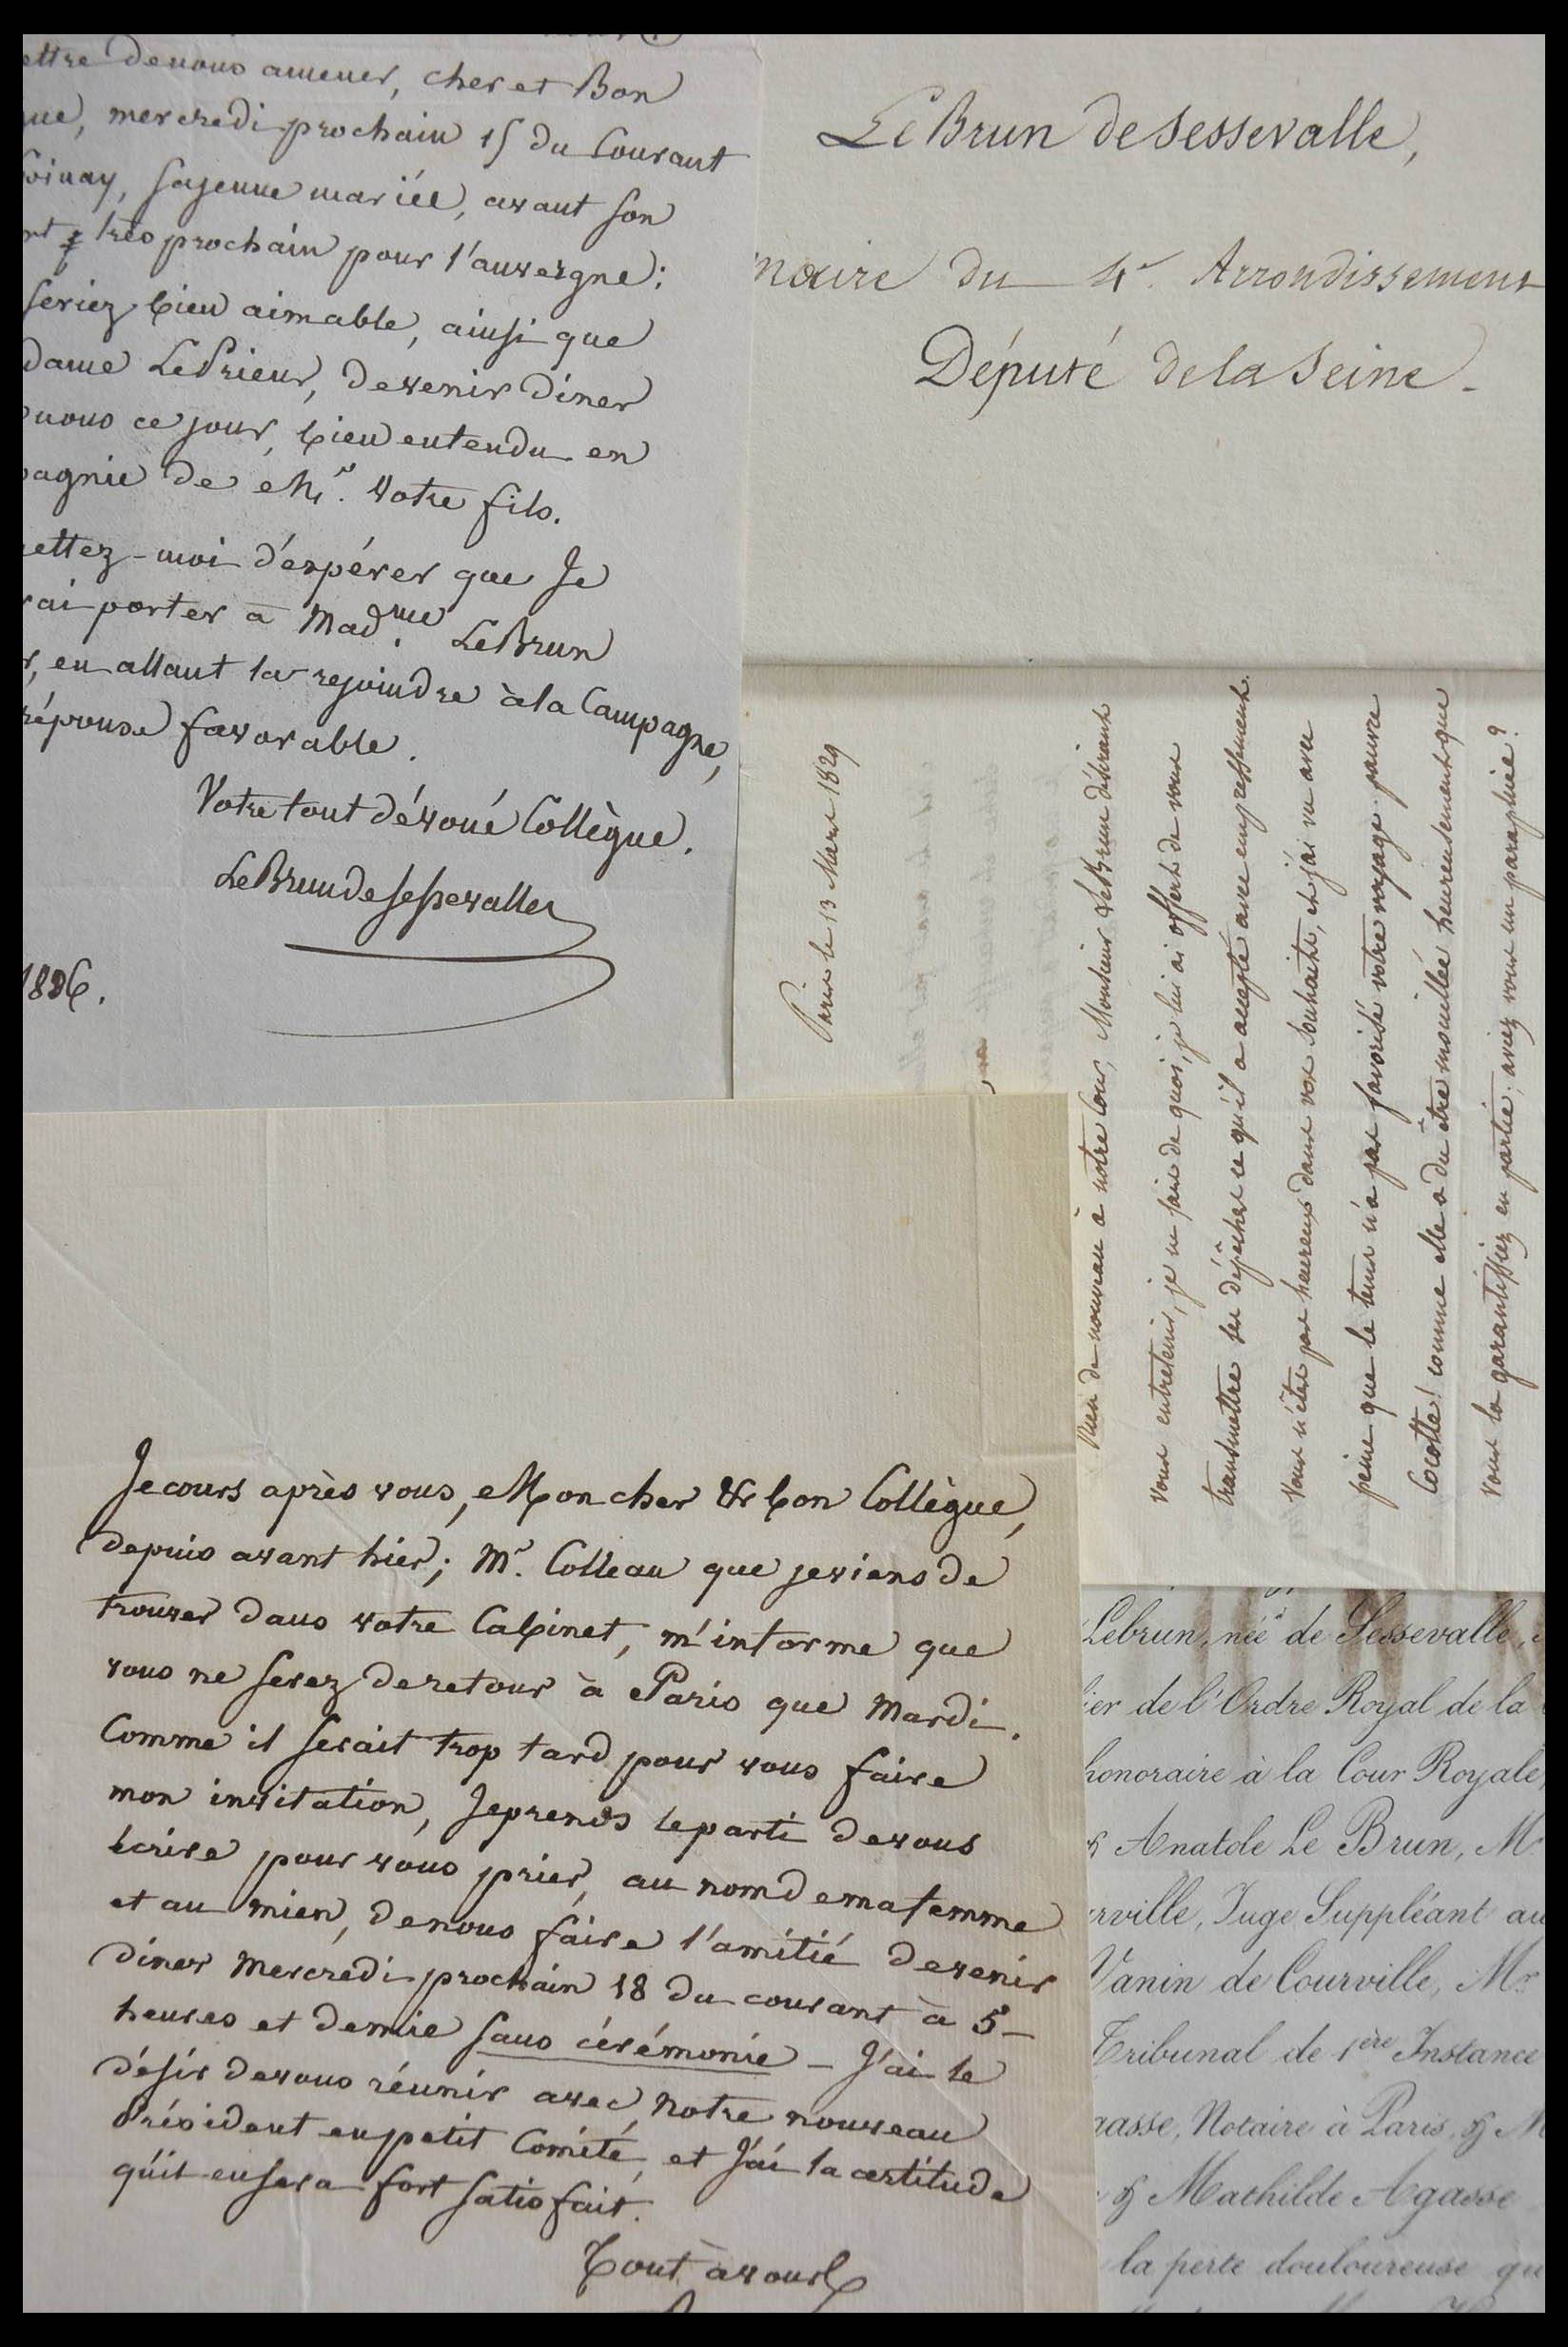 ettre de nous amener, cher et Bon
que, mercredi prochain 15 du Courant
Soinay, sa jeune mariée, avant son
rt très prochain pour l'auvergne:
seriez bien aimable, ainsi que
dame LePrieur, de venir diner
nous ce jour, bien entendu en
pagnie de Mr. votre fils.
mettez-moi d'espérer que Je
rai porter à Madme. LeBrun
r, en allant la rejoindre à la Campagne,
réponse favorable.
Votre tout dévoué Collègue.
LeBrun de Sessevalle
1826.
LeBrun de Sessevalle,
maire du 4e. Arrondissement
Député de la Seine -
Paris le 13 Mars 1829
Rien de nouveau à notre Cour, Monsieur LeBrun désirant
vous entretenir, je ne sais de quoi, je lui ai offert de vous
transmettre ses dépêches ce qu'il a accepté avec empressement.
Vous n'êtes pas heureux dans vos souhaits, et j'ai vu avec
peine que le tems n'a pas favorisé votre voyage. pauvre
Cocotte! comme elle a dû être mouillée heureusement que
vous la garantissiez en partie; aviez vous un parapluie?
Je cours après vous, Mon cher & bon Collègue,
depuis avant hier; Mr. Colleau que je viens de
trouver dans votre Cabinet, m'informe que
vous ne serez de retour à Paris que Mardi.
Comme il serait trop tard pour vous faire
mon invitation, Je prends le parti de vous
écrire pour vous prier, au nom de ma femme
et au mien, de nous faire l'amitié de venir
diner Mercredi prochain 18 du courant à 5-
heures et demie sans cérémonie - J'ai le
désir de vous réunir avec notre nouveau
Président en petit Comité, et J'ai la certitude
qu'il en sera fort satisfait.
Tout à vous
Lebrun, née de Sessevalle,
ier de l'Ordre Royal de la
honoraire à la Cour Royale,
& Anatole Le Brun, Mr
rville, Juge Suppléant au
Vanin de Courville, Mr.
Tribunal de 1ère Instance
gasse, Notaire à Paris, & M
& Mathilde Agasse
la perte douloureuse qu